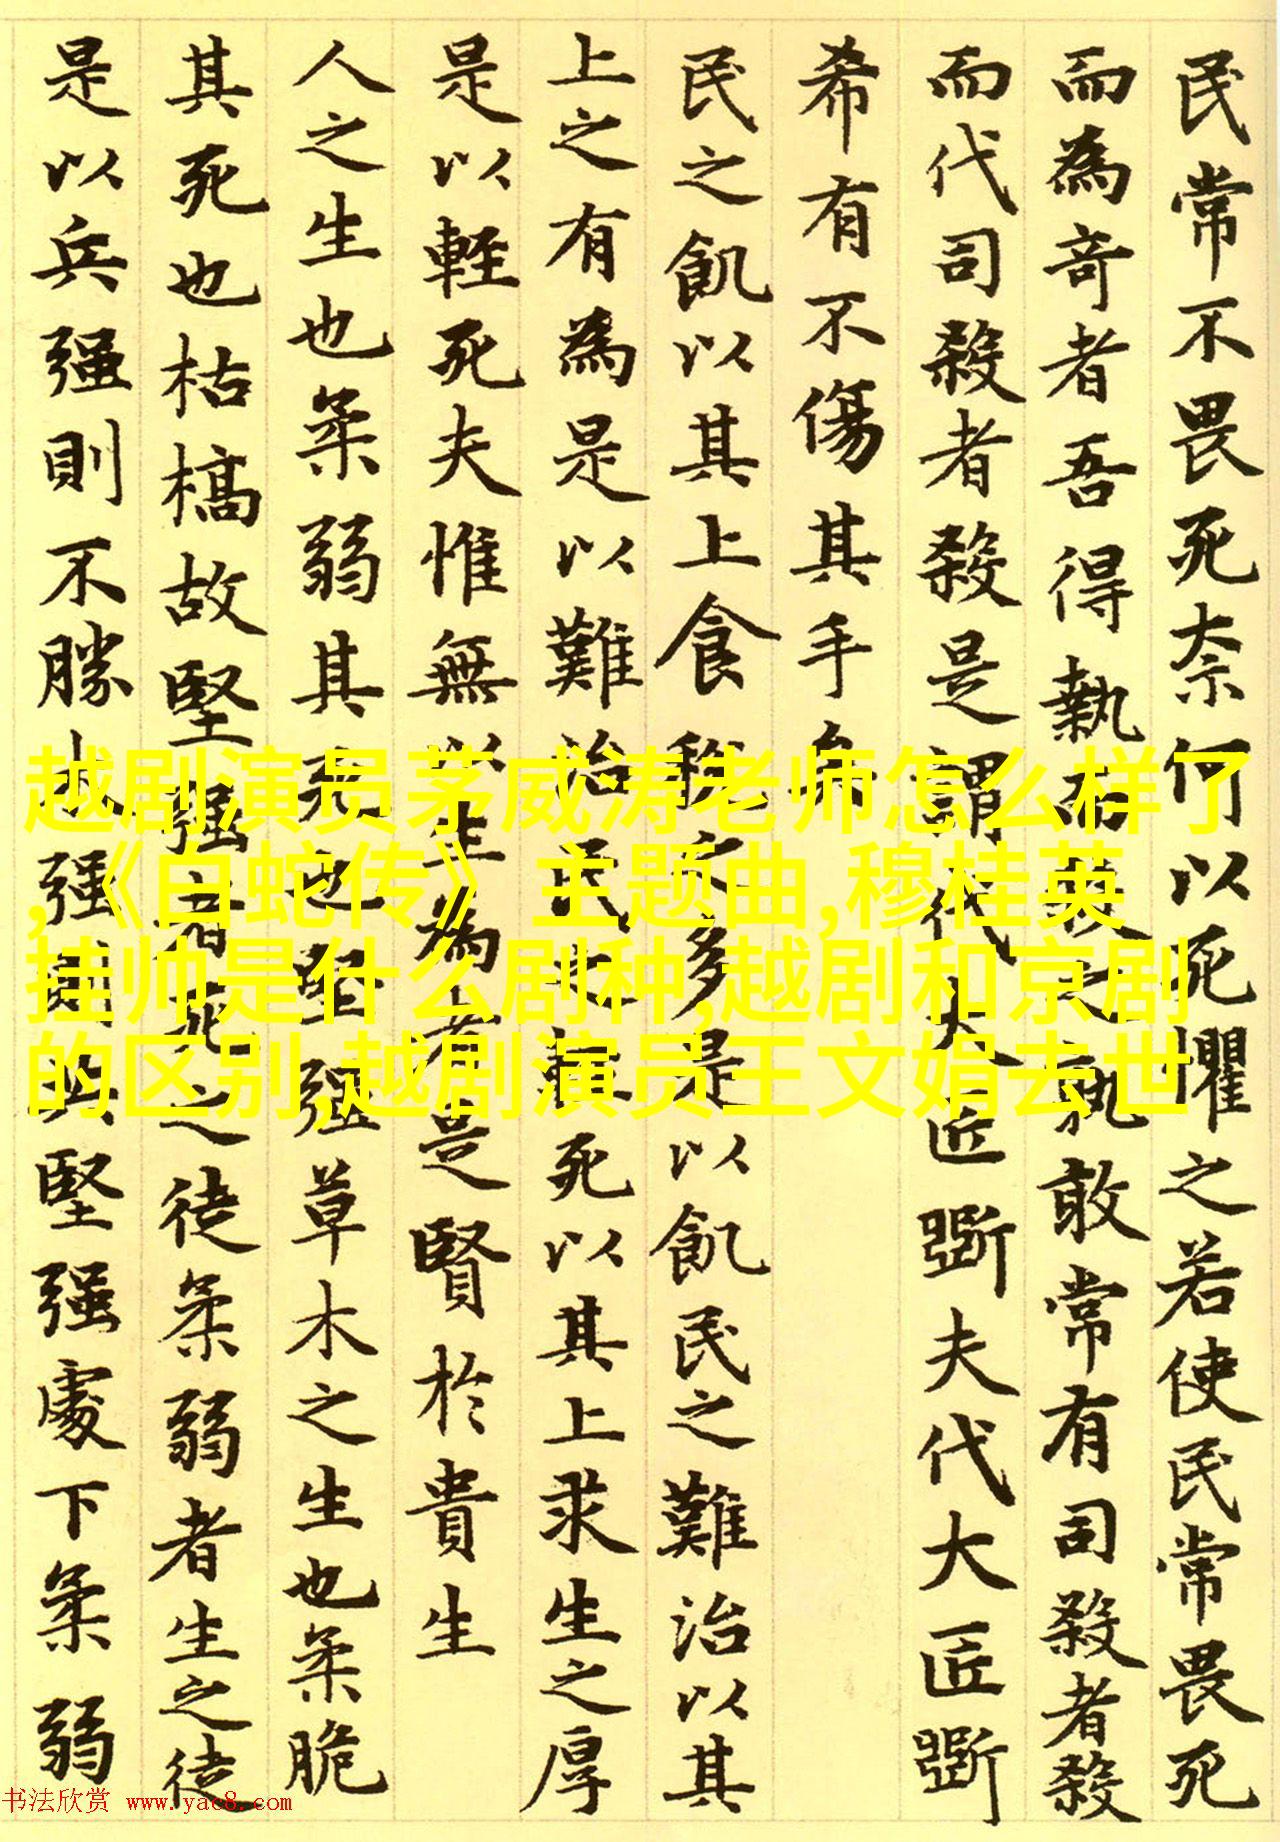 民常不畏死奈何以死懼之若使民常畏死
而為奇者吾得執而殺之孰敢常有司殺者殺
而代司殺者殺是謂代大匠斵夫代大匠斵
希有不傷其手矣
民之飢以其上食稅之多是以飢民之難治以其
上之有為是以難治民之輕死以其上求生之厚
是以輕死夫惟無以生為者是賢於貴生
人之生也柔弱其死也堅强草木之生也柔脆
其死也枯槁故堅强者死之徒柔弱者生之徒
是以兵强則不勝木强則共堅强處下柔弱
越剧演员茅威涛老师怎么样了
,《白蛇传》主题曲,穆桂英
挂帅是什么剧种,越剧和京剧
的区别,越剧演员王文娟去世
书法欣赏 www.yac8.com